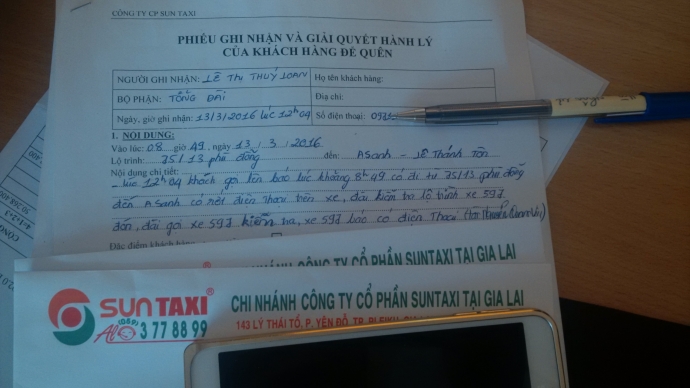 CÔNG TY CP SUN TAXI
PHIẾU GHI NHẬN VÀ GIẢI QUYẾT HÀNH LÝ
CỦA KHÁCH HÀNG ĐỂ QUÊN
NGƯỜI GHI NHẬN: LÊ Thị THUÝ LOAN Họ tên khách hàng:
BỘ PHẬN: TỔNG ĐÀI Địa chỉ:
Ngày, giờ ghi nhận: 13/3/2016 lúc 12h04 Số điện thoại:
1. NỘI DUNG:
Vào lúc: 08 giờ 49, ngày 13.3.2016
Lộ trình: 75/13 phù đổng đến: ASanh - Lê Thánh Tôn
Nội dung chi tiết:
- Lúc 12h04 khách gọi lên báo lúc khoảng 8h49 có đi từ 75/13 phù đổng
đến ASanh có rớt điện thoại trên xe, đài kiểm tra lộ trình xe 597
đón, đài gọi xe 597 kiểm tra, xe 597 báo có điện thoại
Đặc điểm khách hàng
NHÁNH CÔNG TY CỔ PHẦN SUNTAXI TẠI GIA LAI
SUN TAXI®
Alo (059) 3 77 88 99
CHI NHÁNH CÔNG TY CỔ PHẦN SUNTAXI TẠI GIA LAI
143 LÝ THÁI TỔ, P. YÊN ĐỖ, TP. PLEIKU,